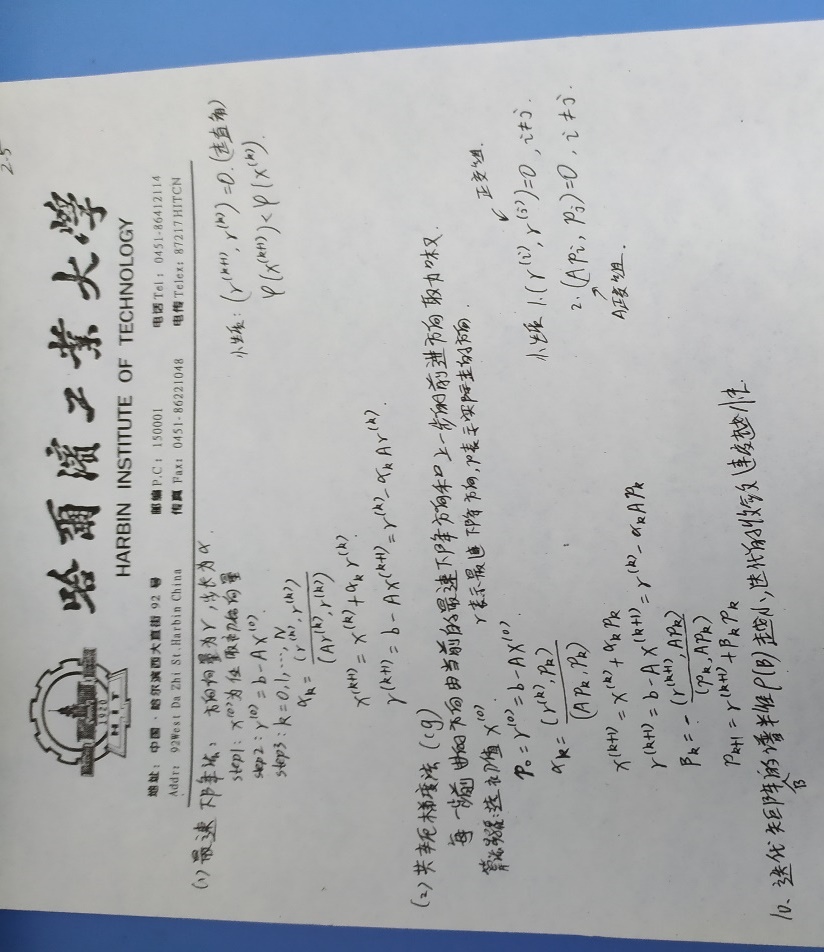 2-5
哈爾濱工業大學
HARBIN INSTITUTE OF TECHNOLOGY
1920
HIT
地址: 中国·哈尔滨西大直街 92 号 邮编 P.C: 150001 电话 Tel: 0451-86412114
Addr: 92West Da Zhi St.Harbin China 传真 Fax: 0451-86221048 电传 Telex: 87217HITCN
(1) 最速下降法: 方向向量为r, 步长为α.
step1: x^(0)为任取初始向量
step2: r^(0)=b-Ax^(0).
step3: k=0,1,...,N
α_k = (r^(k), r^(k)) / (Ar^(k), r^(k))
x^(k+1) = x^(k) + α_k r^(k).
r^(k+1) = b - Ax^(k+1) = r^(k) - α_k Ar^(k).
性质: (r^(k+1), r^(k)) = 0. (走直角)
φ(x^(k+1)) < φ(x^(k)).
(2) 共轭梯度法 (cg)
每一步前进的方向由当前的最速下降方向和上一步的前进方向取加权.
r表示最速下降方向, p表示实际走的方向.
算法步骤: 选初值 x^(0)
p_0 = r^(0) = b - Ax^(0).
α_k = (r^(k), P_k) / (AP_k, P_k)
x^(k+1) = x^(k) + α_k P_k
r^(k+1) = b - Ax^(k+1) = r^(k) - α_k AP_k
β_k = - (r^(k+1), AP_k) / (P_k, AP_k)
P_k+1 = r^(k+1) + β_k P_k
性质 1. (r^(i), r^(j)) = 0, i≠j. 正交组.
2. (AP_i, P_j) = 0, i≠j.
A正交组.
10、迭代矩阵B的谱半径ρ(B)越小, 迭代的收敛速度越快.